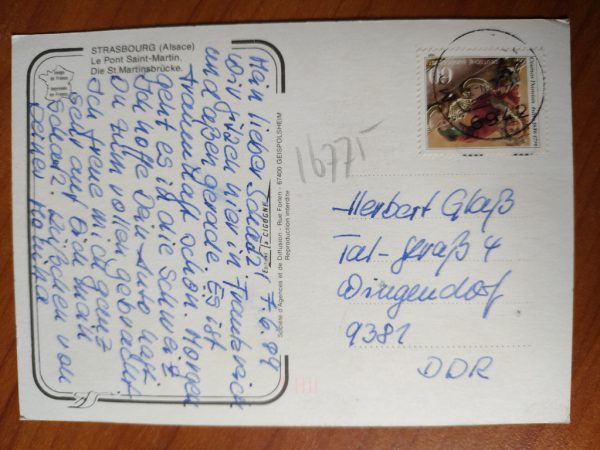 STRASBOURG (Alsace)
Le Pont Saint-Martin.
Die St.Martinsbrücke.
Mein lieber Schatz! 7.6.89
Wir sitzen hier in Frankreich
und essen gerade. Es ist
traumhaft schön. Morgen
geht es in die Schweiz
Ich hoffe Dein Auto hat
Du zum vollen gebracht
Ich freue mich ganz
sehr auf Dich mein
Schatz! Küßchen von
Deiner
Editions "La CIGOGNE"
Société d'Agences et de Diffusion - Rue Forlen - 67400 GEISPOLSHEIM
Reproduction interdite
16775
DEUTSCHE BUNDESPOST
Herbert Glaß
Tal-straß 4
Dingendorf
9381
DDR